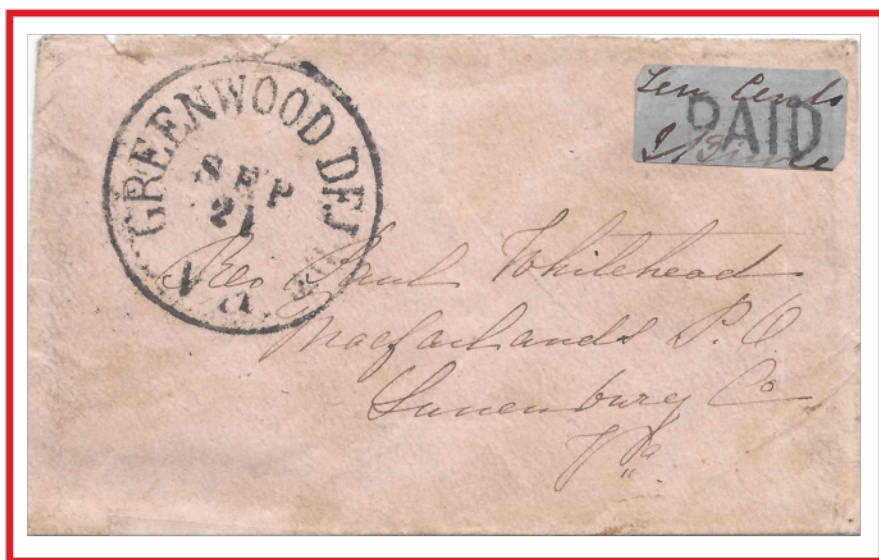 GREENWOOD DEP
SEP
21
Va
Ten Cents
PAID
Rev Paul Whitehead
Macfarlands P. O
Lunenburg Co
Va